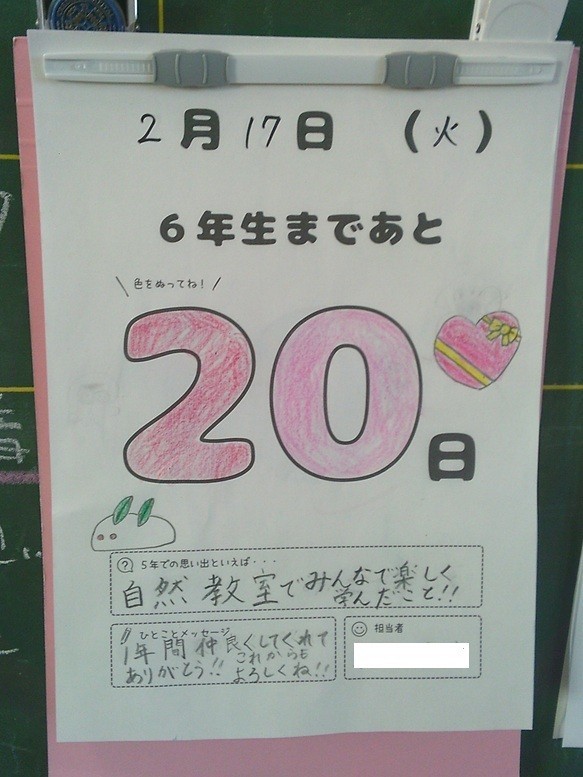 2月17日 (火)
6年生まであと
\ 色をぬってね! /
20日
? 5年での思い出といえば・・・
自然教室でみんなで楽しく
学んだこと!!
ひとことメッセージ
1年間仲良くしてくれて
ありがとう!! これからも
よろしくね!!
担当者